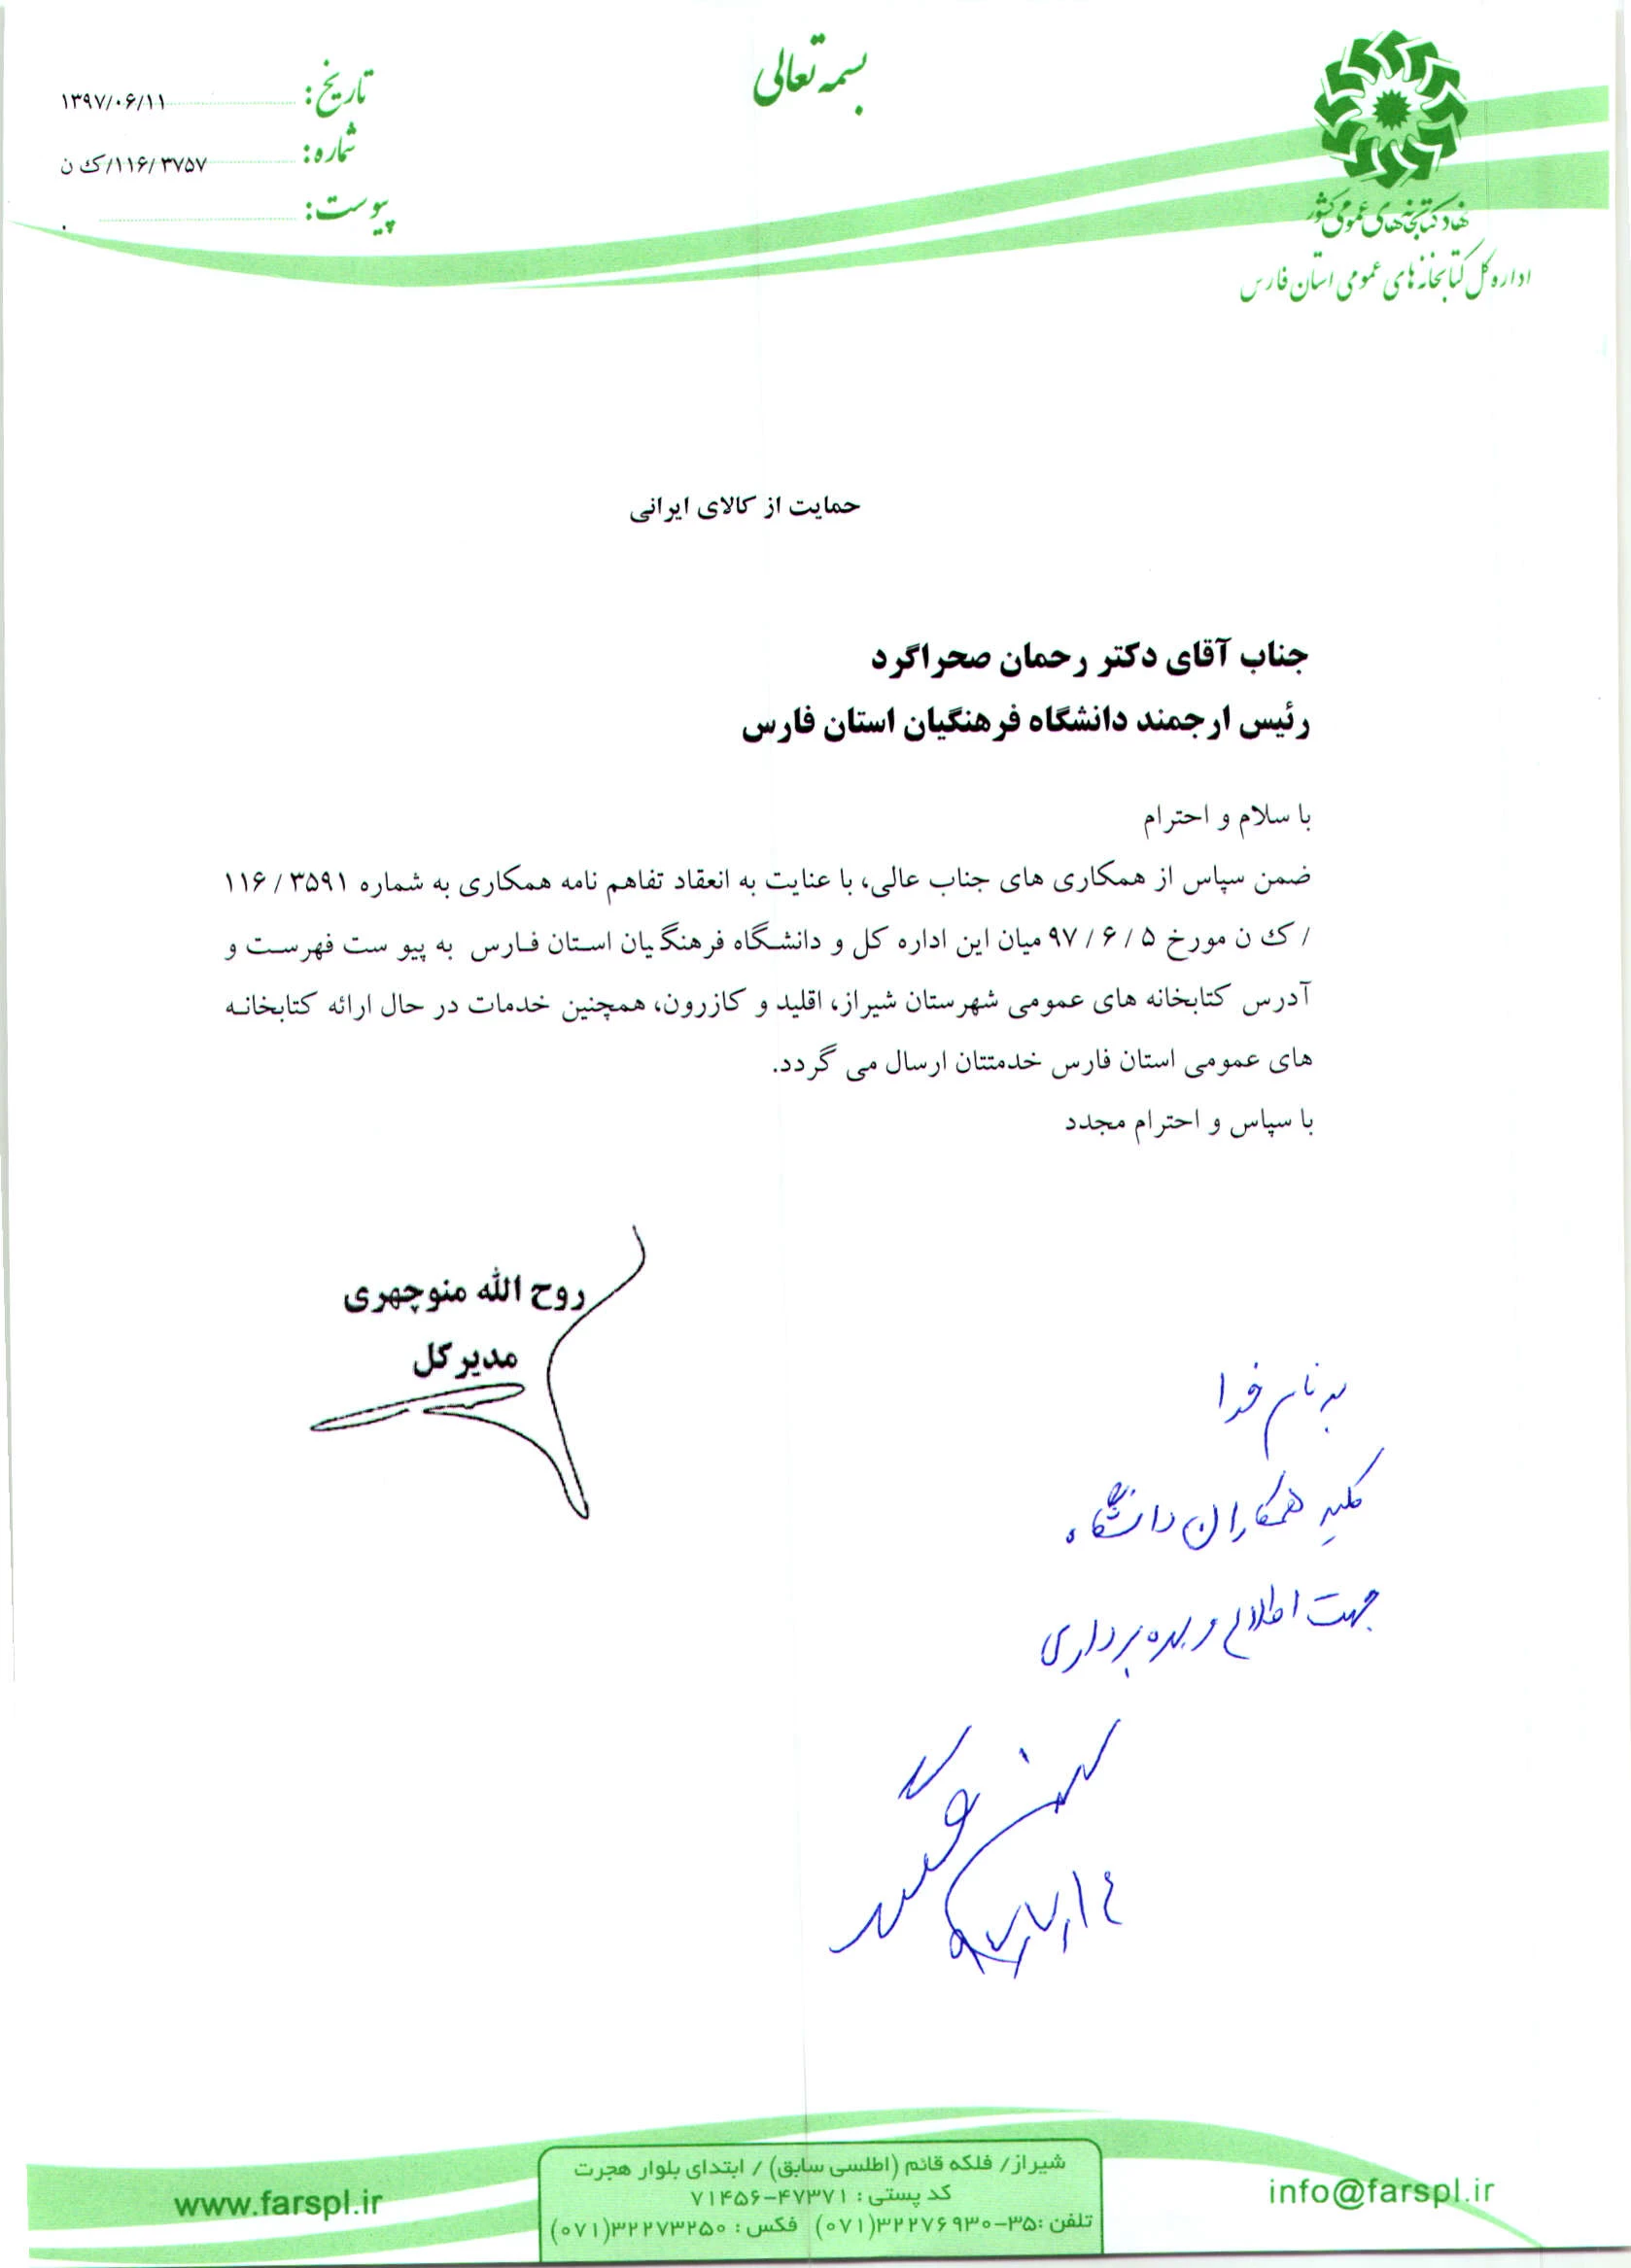 بسمه تعالی
تاریخ: ۱۳۹۷/۰۶/۱۱
شماره: ۱۱۶/۳۷۵۷/ک ن
پیوست: ۰
نهاد کتابخانه‌های عمومی کشور
اداره کل کتابخانه های عمومی استان فارس
حمایت از کالای ایرانی
جناب آقای دکتر رحمان صحراگرد
رئیس ارجمند دانشگاه فرهنگیان استان فارس
با سلام و احترام
ضمن سپاس از همکاری های جناب عالی، با عنایت به انعقاد تفاهم نامه همکاری به شماره ۳۵۹۱ / ۱۱۶
/ ک ن مورخ ۵ / ۶ / ۹۷ میان این اداره کل و دانشگاه فرهنگیان استان فارس به پیو ست فهرست و
آدرس کتابخانه های عمومی شهرستان شیراز، اقلید و کازرون، همچنین خدمات در حال ارائه کتابخانه
های عمومی استان فارس خدمتتان ارسال می گردد.
با سپاس و احترام مجدد
روح الله منوچهری
مدیرکل
به نام خدا
کلیه همکاران دانشگاه
جهت اطلاع و بهره برداری
شیراز/ فلکه قائم (اطلسی سابق) / ابتدای بلوار هجرت
کد پستی : ۴۷۳۷۱–۷۱۴۵۶
تلفن :۳۵–۳۲۲۷۶۹۳۰(۰۷۱) فکس : ۳۲۲۷۳۲۵۰(۰۷۱)
www.farspl.ir
info@farspl.ir